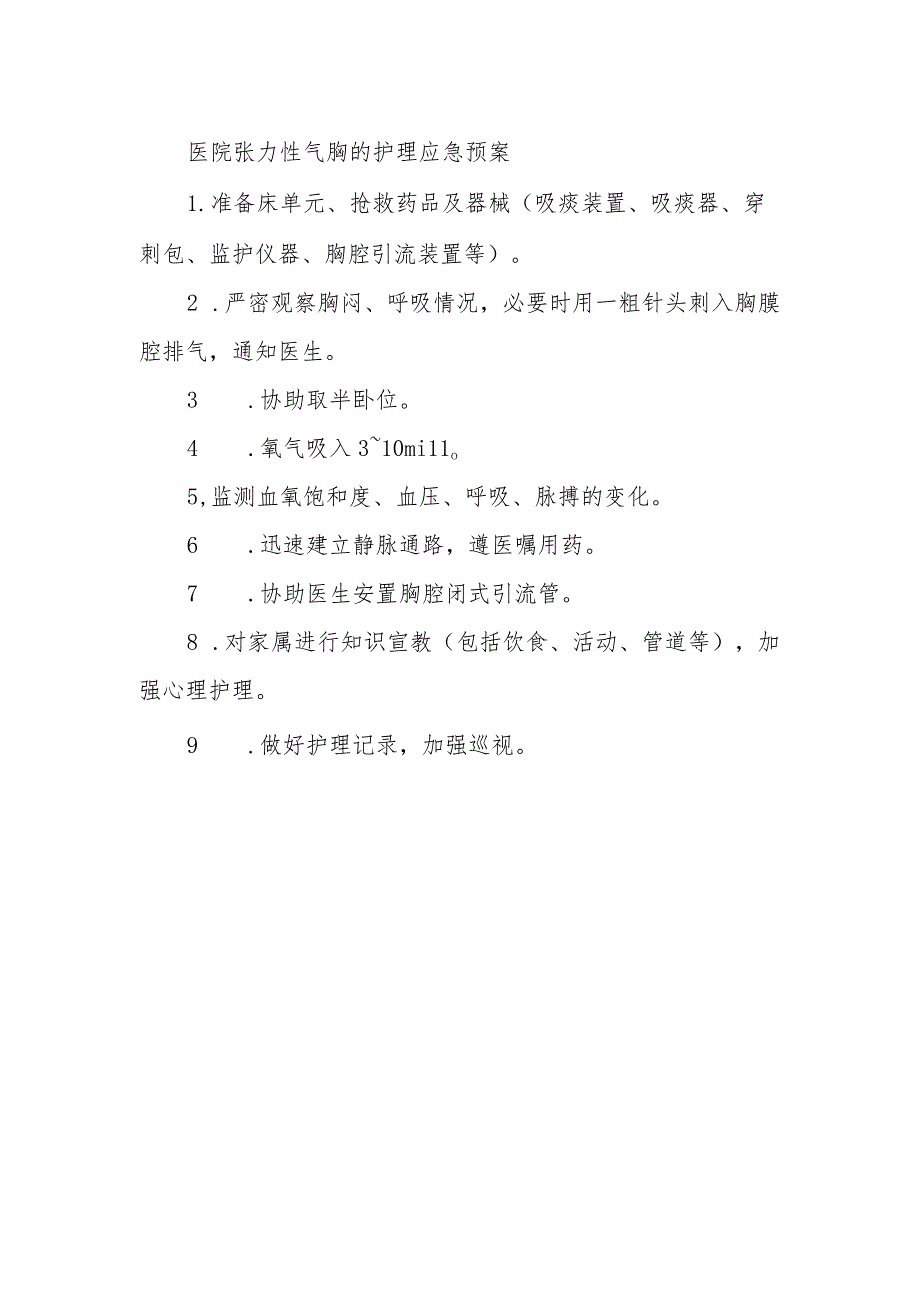 医院张力性气胸的护理应急预案
1.准备床单元、抢救药品及器械（吸痰装置、吸痰器、穿
刺包、监护仪器、胸腔引流装置等）。
2 .严密观察胸闷、呼吸情况，必要时用一粗针头刺入胸膜
腔排气，通知医生。
3 .协助取半卧位。
4 .氧气吸入3~10mill。
5,监测血氧饱和度、血压、呼吸、脉搏的变化。
6 .迅速建立静脉通路，遵医嘱用药。
7 .协助医生安置胸腔闭式引流管。
8 .对家属进行知识宣教（包括饮食、活动、管道等），加
强心理护理。
9 .做好护理记录，加强巡视。